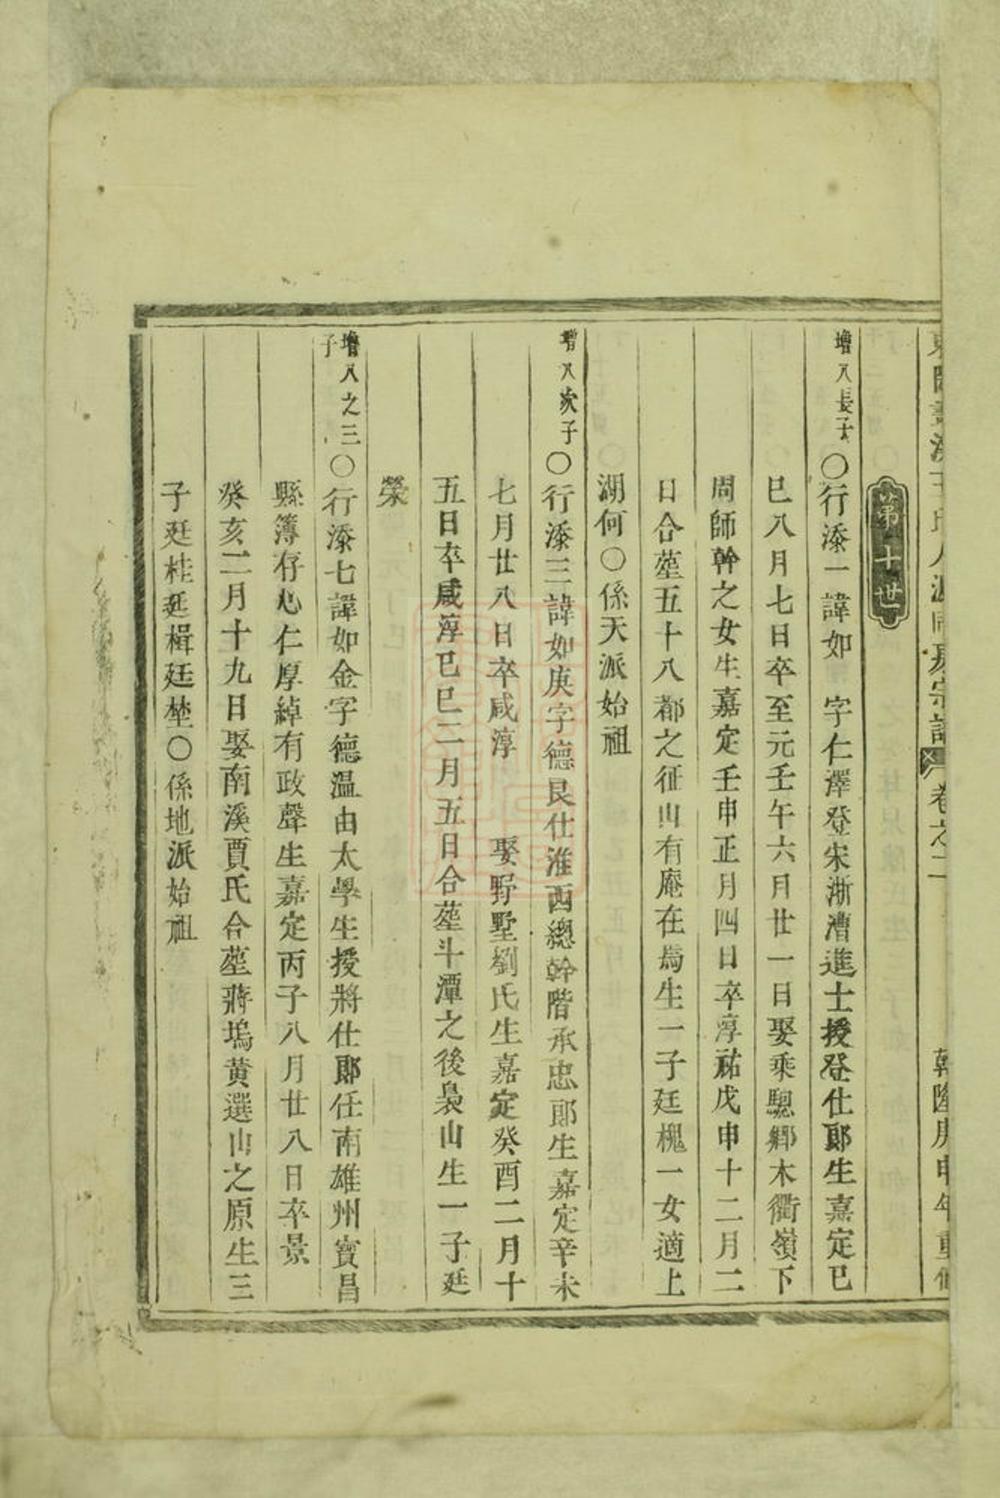 宗譜 卷之二 乾隆庚申年重修
第十世
增八長子○行漆一諱如 字仁澤登宋浙漕進士授登仕郎生嘉定己
巳八月七日卒至元壬午六月廿一日娶乘驄鄉木衢嶺下
周師幹之女生嘉定壬申正月四日卒淳祐戊申十二月二
日合塟五十八都之征山有庵在焉生一子廷槐一女適上
湖何○係天派始祖
增八次子○行漆三諱如庚字德艮仕淮西總幹階承忠郎生嘉定辛未
七月廿八日卒咸淳 娶野墅劉氏生嘉定癸酉二月十
五日卒咸淳己巳二月五日合塟斗潭之後裊山生一子廷
榮
增八之三子○行漆七諱如金字德温由太學生授將仕郎任南雄州寳昌
縣簿存心仁厚綽有政聲生嘉定丙子八月廿八日卒景
癸亥二月十九日娶南溪賈氏合塟蔣塢黄選山之原生三
子廷桂廷楫廷埜○係地派始祖